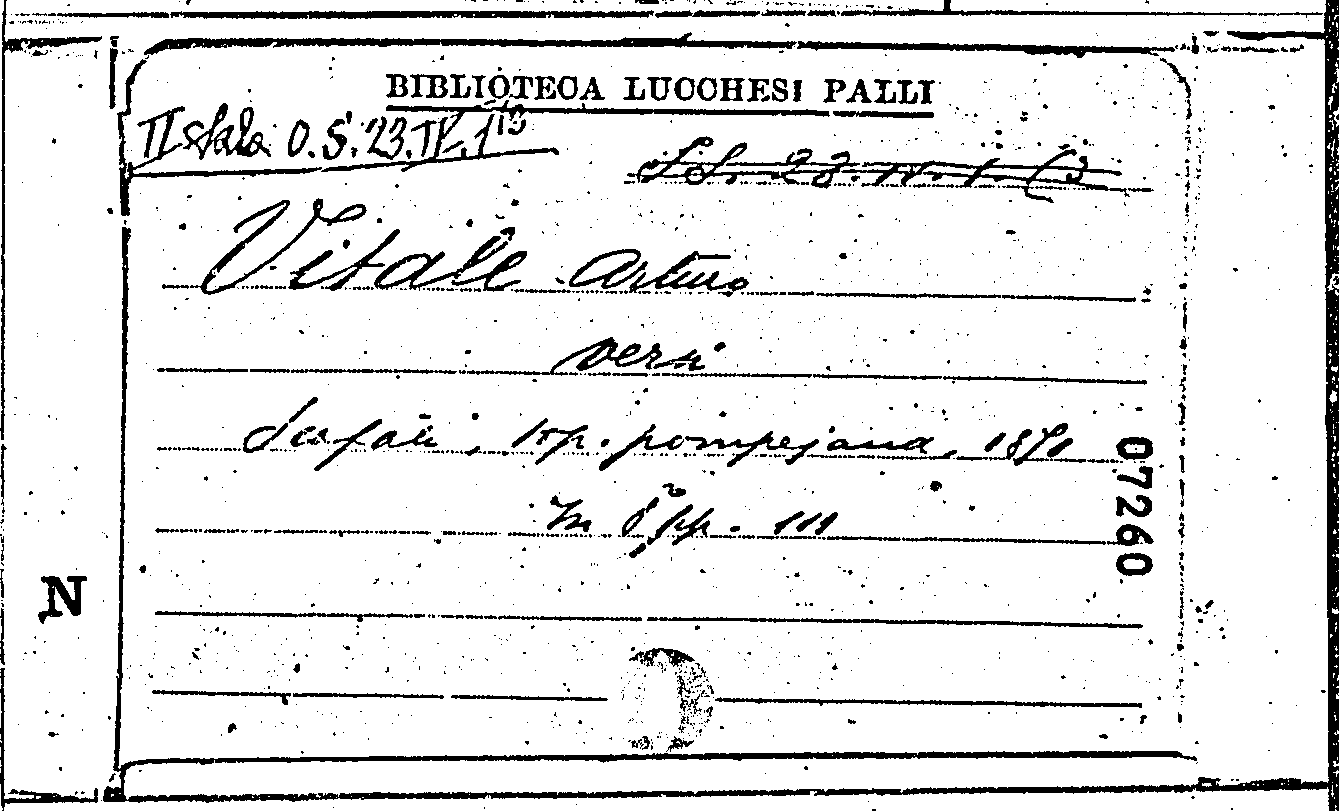 BIBLIOTECA LUCCHESI PALLI
II Sala O.S. 23.IV.1(13
Vitale Arturo
versi
Scafati, tip. pompejana, 18
In 8° pp. 111
07260
N